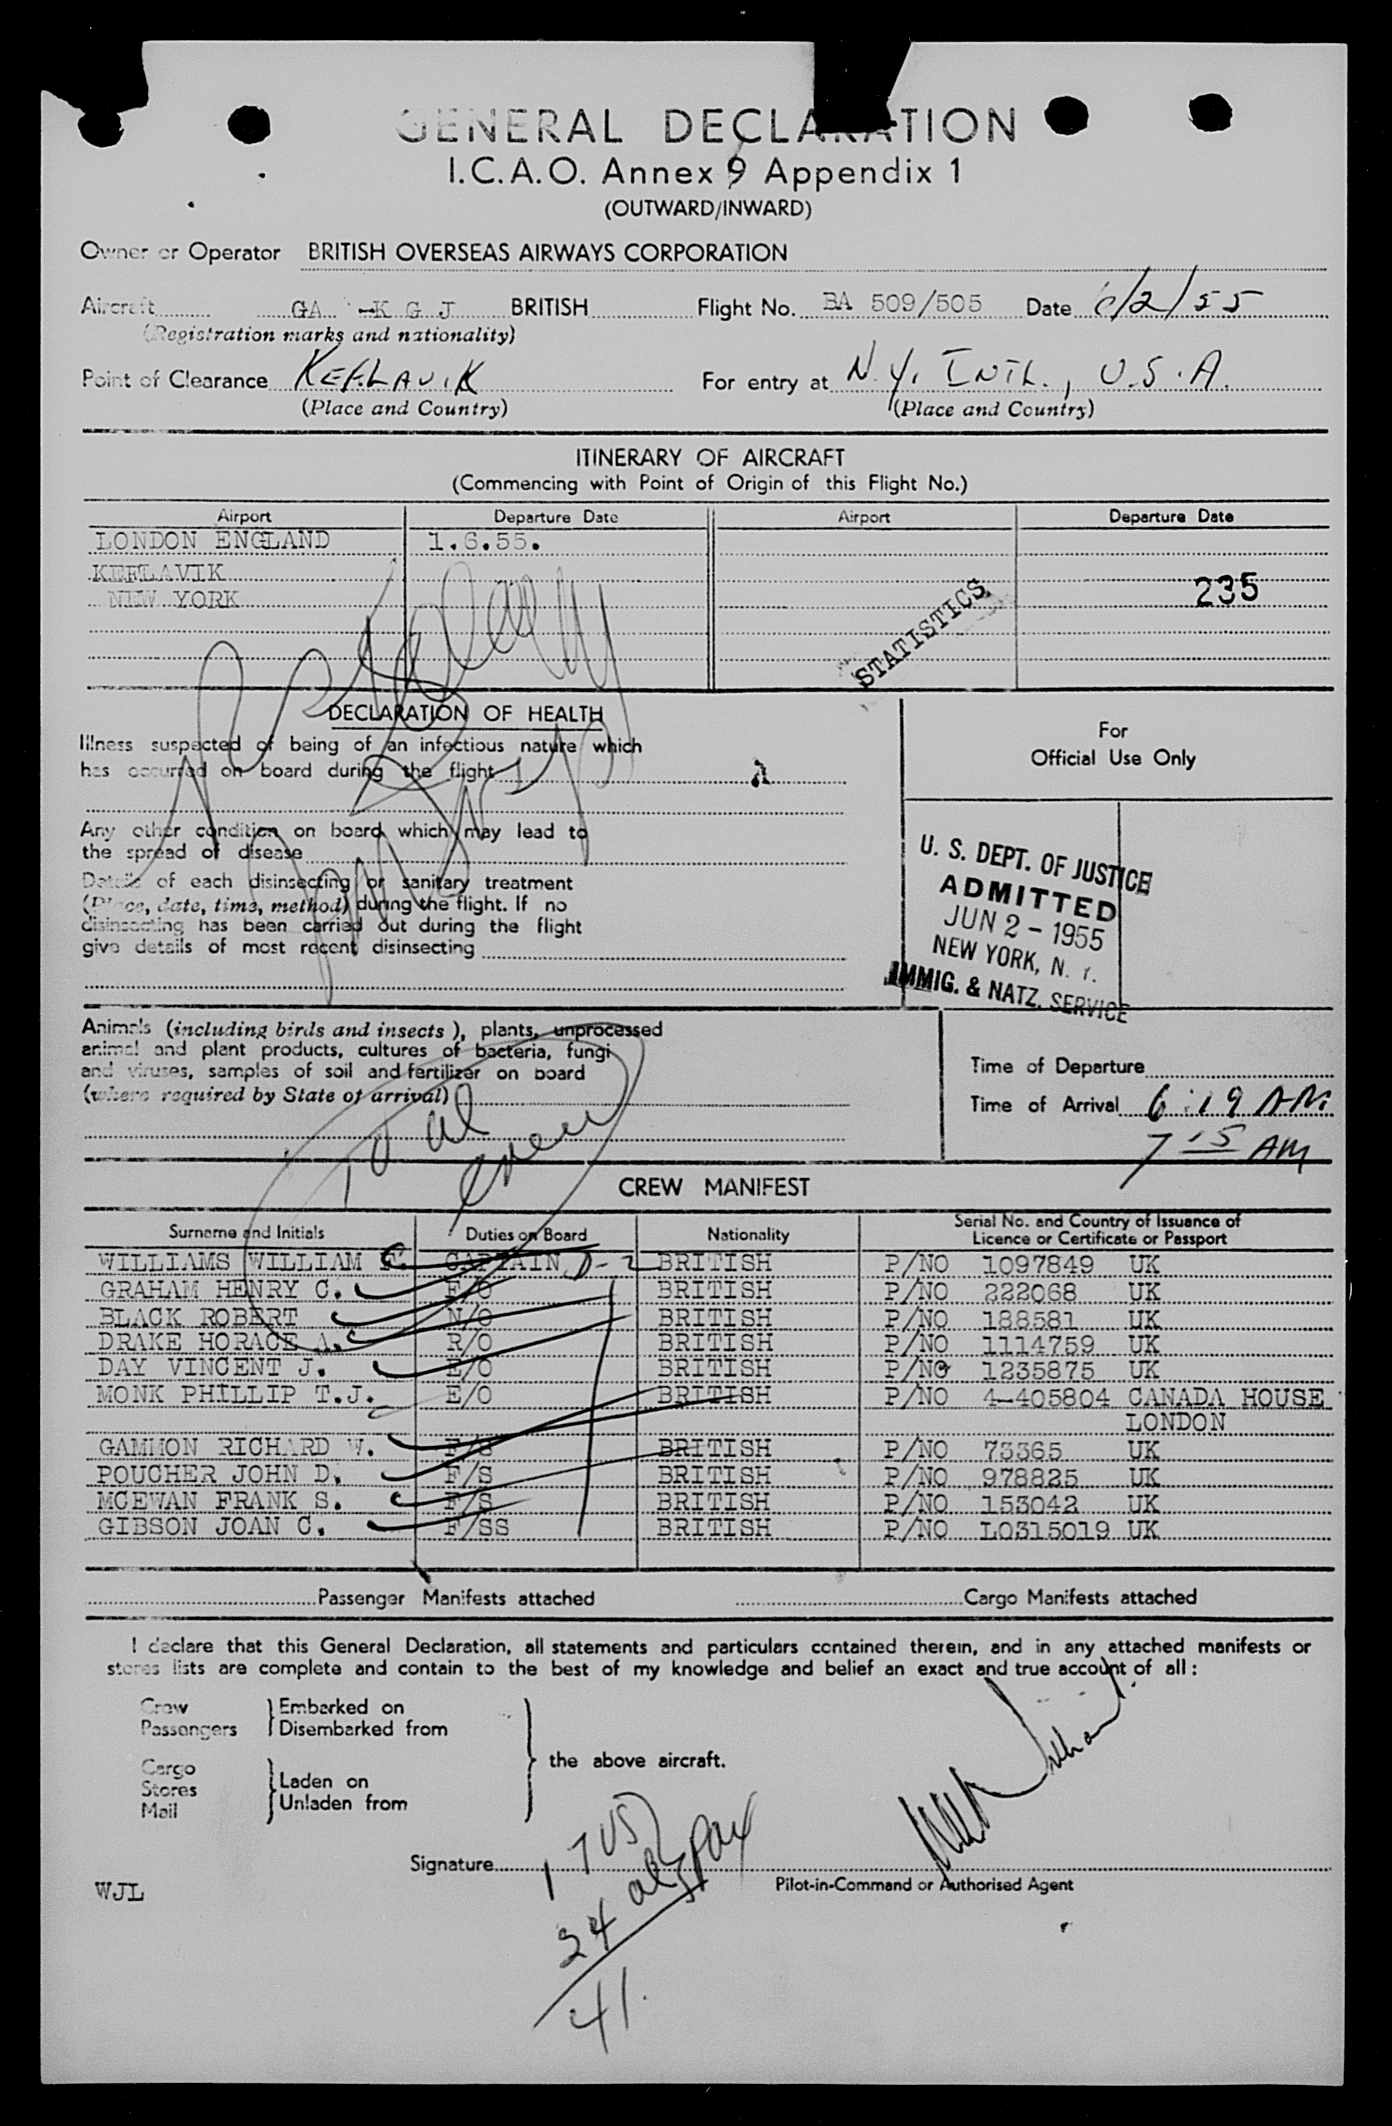 GENERAL DECLARATION
I.C.A.O. Annex 9 Appendix 1
(OUTWARD/INWARD)
Owner or Operator BRITISH OVERSEAS AIRWAYS CORPORATION
Aircraft GA -K G J BRITISH Flight No. BA 509/505 Date 6/2/55
(Registration marks and nationality)
Point of Clearance KEFLAVIK For entry at N.Y. INTL., U.S.A.
(Place and Country) (Place and Country)
ITINERARY OF AIRCRAFT
(Commencing with Point of Origin of this Flight No.)
Airport Departure Date Airport Departure Date
LONDON ENGLAND 1.6.55.
KEFLAVIK
NEW YORK
235
STATISTICS
DECLARATION OF HEALTH
Illness suspected of being of an infectious nature which
has occurred on board during the flight
Any other condition on board which may lead to
the spread of disease
Details of each disinsecting or sanitary treatment
(Place, date, time, method) during the flight. If no
disinsecting has been carried out during the flight
give details of most recent disinsecting
For
Official Use Only
U. S. DEPT. OF JUSTICE
ADMITTED
JUN 2 - 1955
NEW YORK, N. Y.
IMMIG. & NATZ. SERVICE
Animals (including birds and insects ), plants, unprocessed
animal and plant products, cultures of bacteria, fungi
and viruses, samples of soil and fertilizer on board
(where required by State of arrival)
Time of Departure
Time of Arrival 6:19 AM
7 15 AM
10 al
crew
CREW MANIFEST
Surname and Initials Duties on Board Nationality Serial No. and Country of Issuance of
Licence or Certificate or Passport
WILLIAMS WILLIAM F. CAPTAIN D-2 BRITISH P/NO 1097849 UK
GRAHAM HENRY C. F/O BRITISH P/NO 222068 UK
BLACK ROBERT N/O BRITISH P/NO 188581 UK
DRAKE HORACE A. R/O BRITISH P/NO 1114759 UK
DAY VINCENT J. E/O BRITISH P/NO 1235875 UK
MONK PHILLIP T.J. E/O BRITISH P/NO 4-405804 CANADA HOUSE
LONDON
GAMMON RICHARD W. F/S BRITISH P/NO 73365 UK
POUCHER JOHN D. F/S BRITISH P/NO 978825 UK
MCEWAN FRANK S. F/S BRITISH P/NO 153042 UK
GIBSON JOAN C. F/SS BRITISH P/NO L0315019 UK
Passenger Manifests attached Cargo Manifests attached
I declare that this General Declaration, all statements and particulars contained therein, and in any attached manifests or
stores lists are complete and contain to the best of my knowledge and belief an exact and true account of all :
Crew
Passengers
Embarked on
Disembarked from
Cargo
Stores
Mail
Laden on
Unladen from
the above aircraft.
Signature
Pilot-in-Command or Authorised Agent
17 US
24 al
pax
41.
WJL